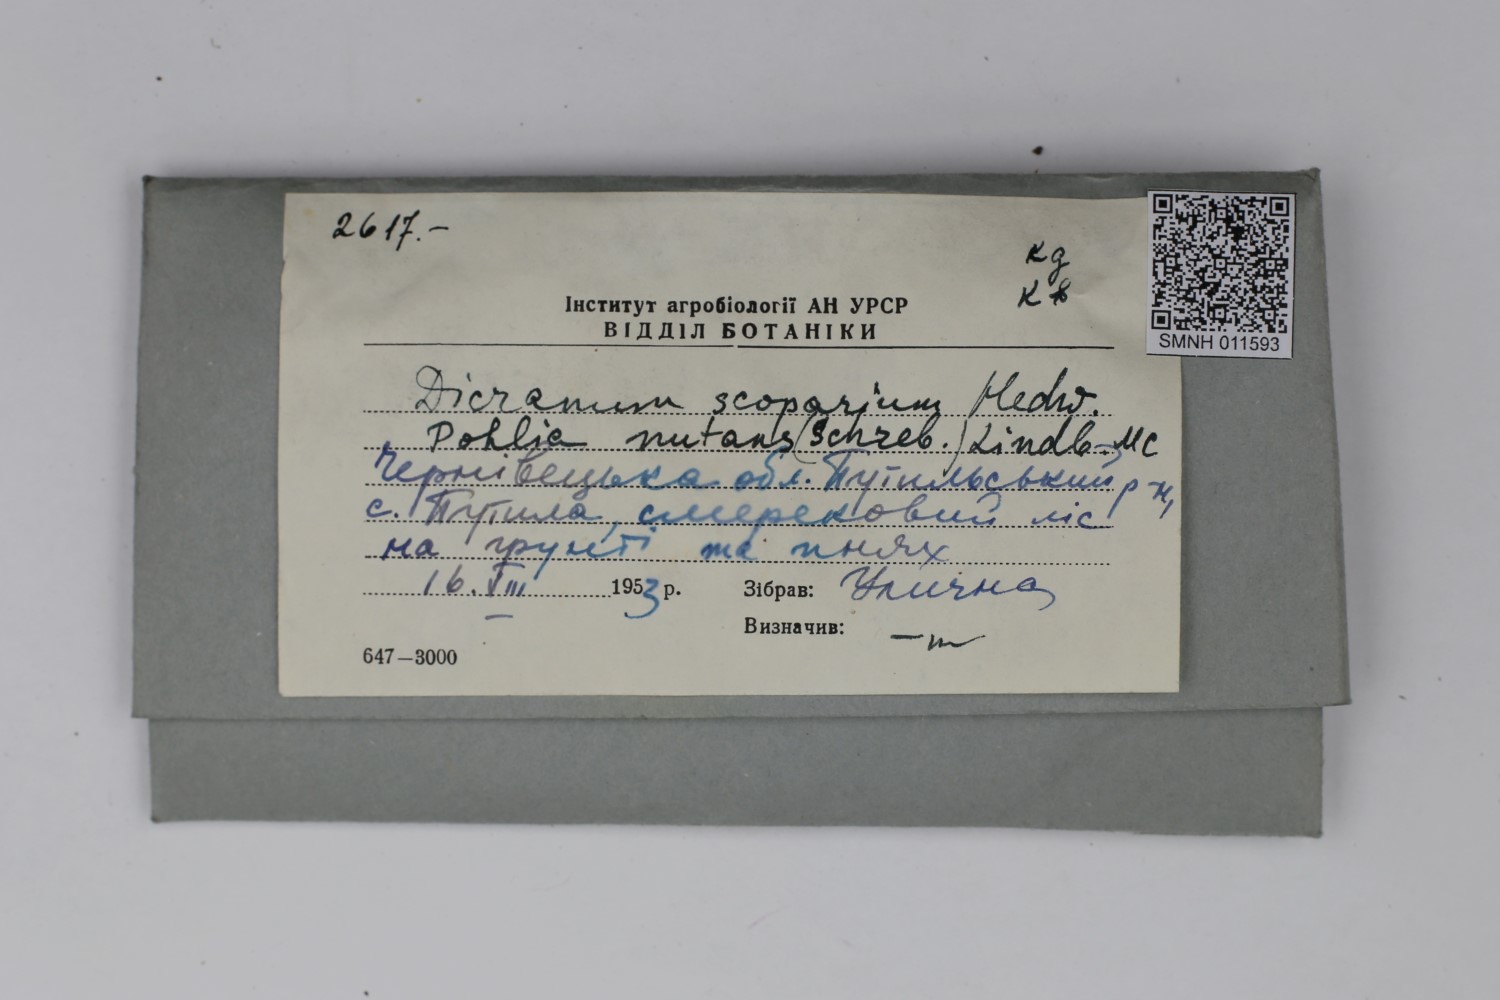 2617.-
кд
кв
SMNH 011593
Інститут агробіології АН УРСР
ВІДДІЛ БОТАНІКИ
Dicranum scoparium Hedw.
Pohlia nutans (Schreb.) Lindb. - Мс
Чернівецька обл. Путильський р-н,
с. Путила, смерековий ліс
на ґрунті та пнях
16. VIII 1953 р. Зібрав: Улична
Визначив: —"—
647—3000